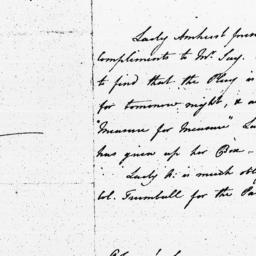 Lady Amherst
compliments to Mr. Jay.
to find that the Play is
for tomorrow night, &
"Measure for Measure"
has given up her Box -
Lady A: is much
Col. Trumbull for the